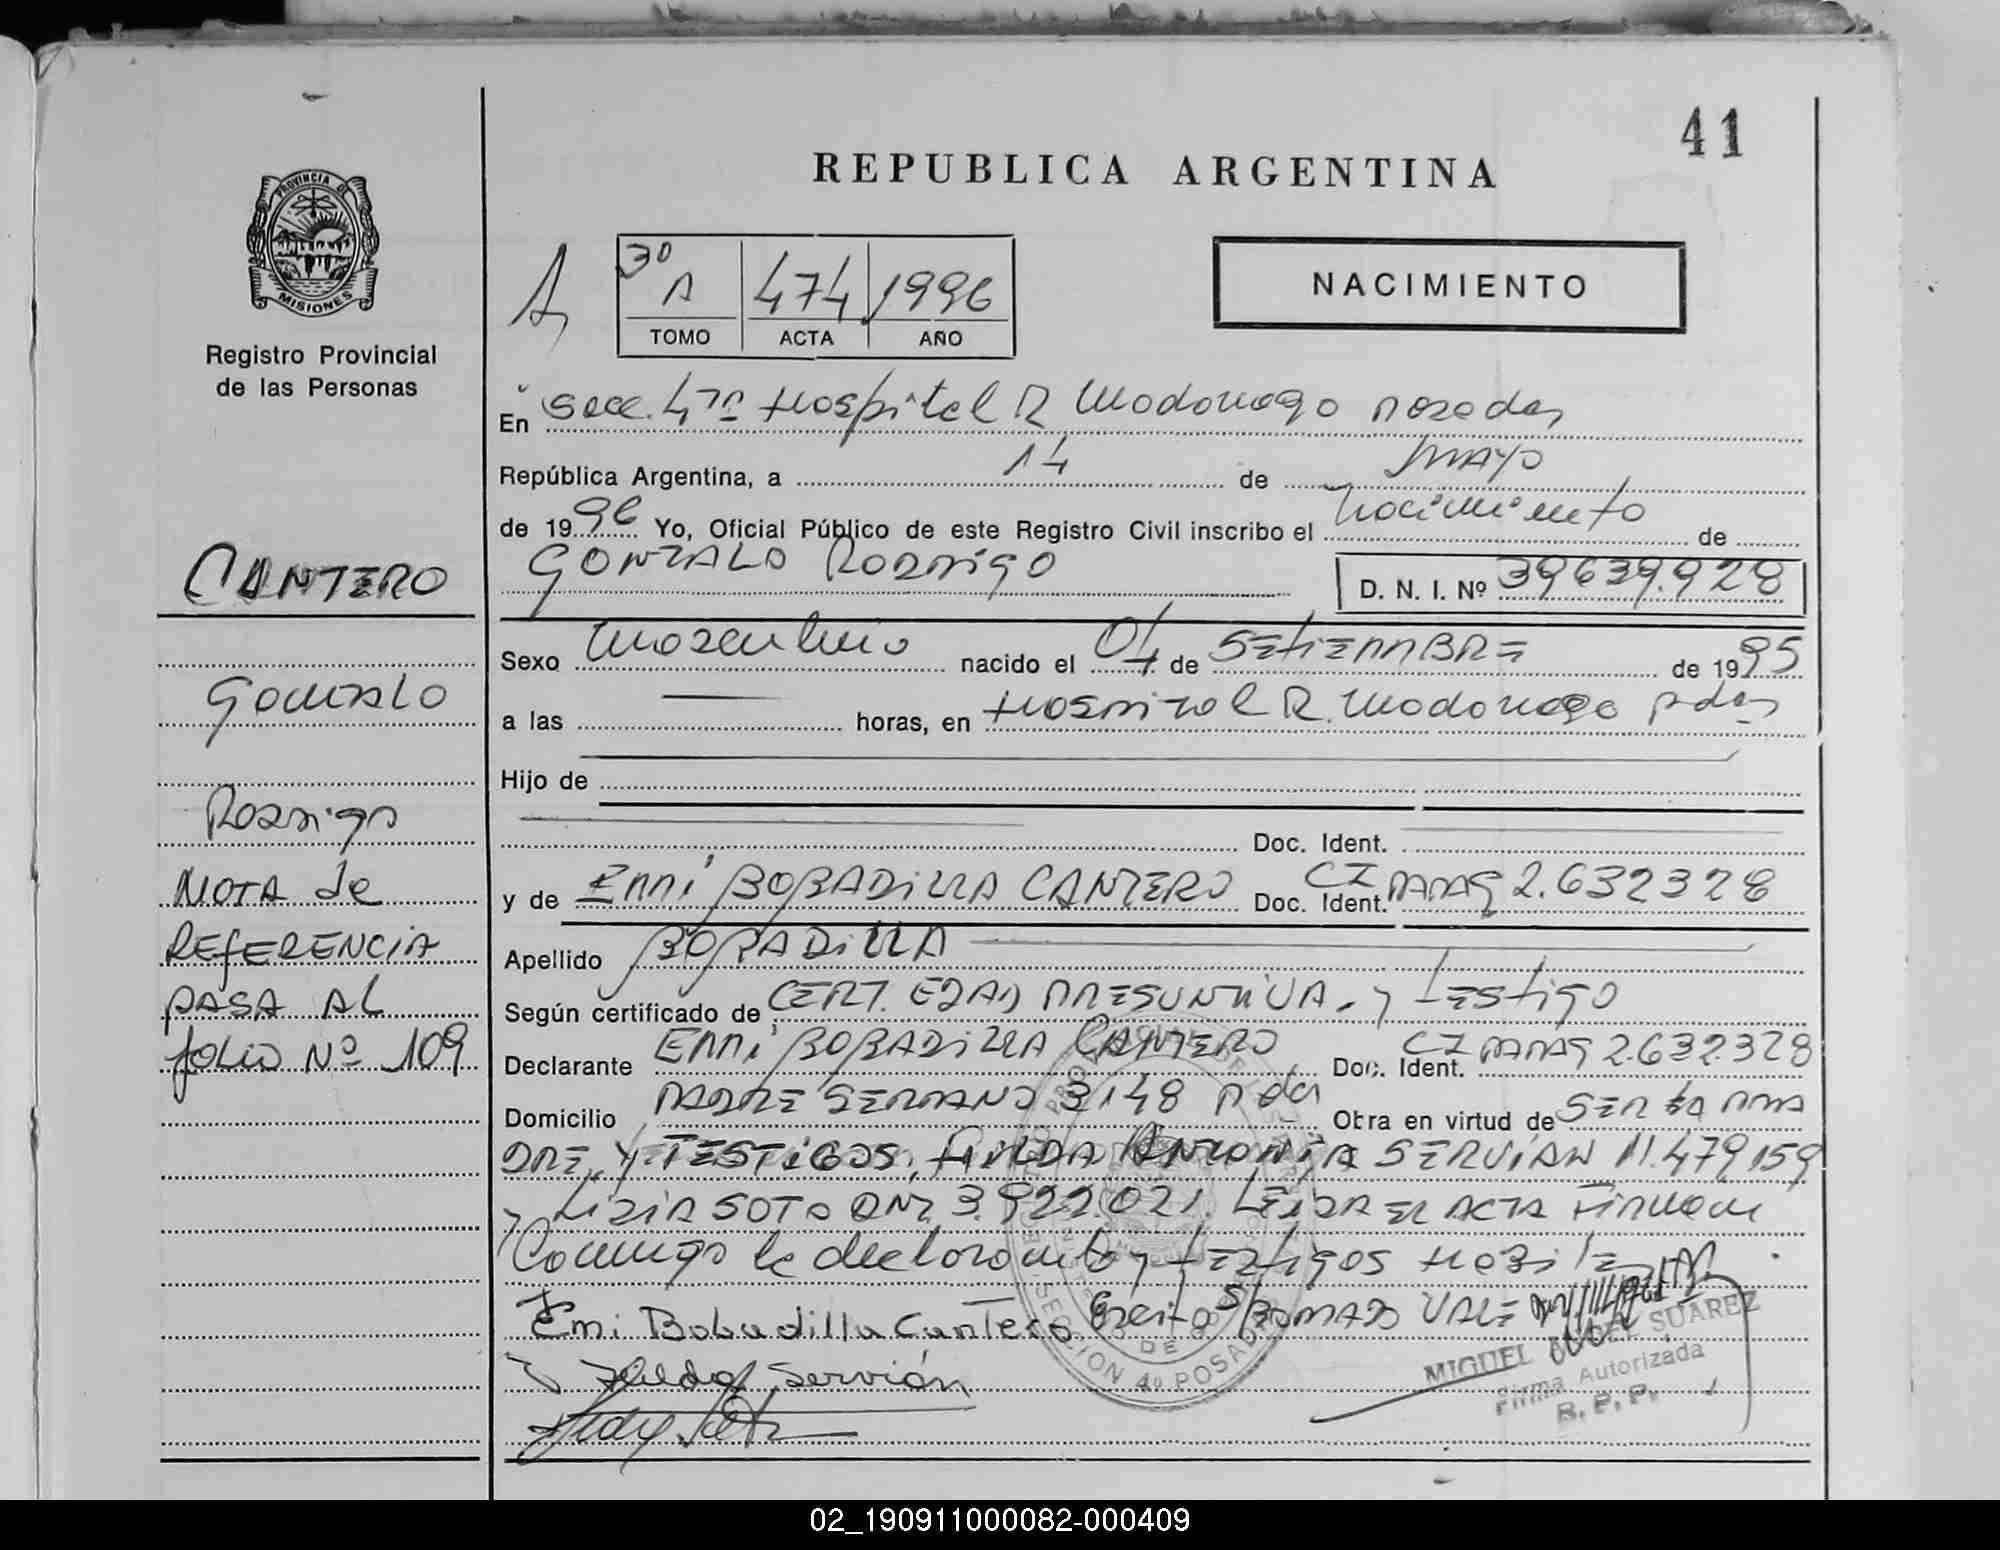 41
REPUBLICA ARGENTINA
PROVINCIA DE
MISIONES
Registro Provincial
de las Personas
3º
A 474 1996
TOMO ACTA AÑO
NACIMIENTO
En Secc. 4ta Hospital R Madariaga Posadas
República Argentina, a 14 de Mayo
de 1996 Yo, Oficial Público de este Registro Civil inscribo el Nacimiento de
GONZALO RODRIGO D. N. I. Nº 39639.928
Sexo Masculino nacido el 04 de SETIEMBRE de 1995
a las horas, en Hospital R. Madariaga Pdas
Hijo de
Doc. Ident.
y de EMMI BOBADILLA CANTERO Doc. Ident. CI 2.632328
Apellido BOBADILLA
Según certificado de CERT. EDAD PRESUNTIVA. y testigo
Declarante EMMI BOBADILLA CANTERO Doc. Ident. CI 2.632.328
Domicilio PADRE SERRANO 3148 Pdas Obra en virtud de SER LA MA
DRE, Y TESTIGOS, HILDA ANTONIA SERVIAN 11.479159
y LIDIA SOTO DNI 3.922.021. LEIDA EL ACTA Firman
Conmigo la declarante y testigos
Emi Bobadilla Cantero S/BORRADO VALE
Hilda Servián
MIGUEL ANGEL SUAREZ
Firma Autorizada
R. P. P.
SECCION 4º POSADAS
CANTERO
Gonzalo
Rodrigo
NOTA de
REFERENCIA
PASA AL
folio Nº 109
02_190911000082-000409